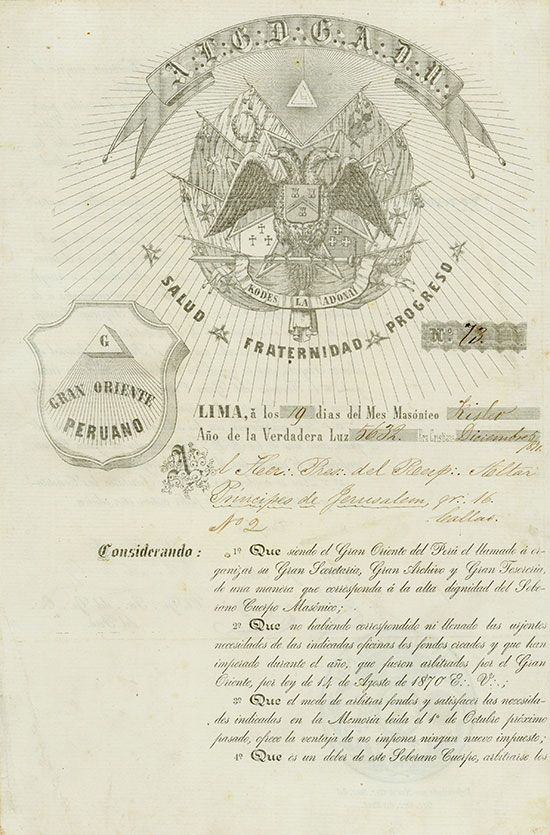 A∴L∴G∴D∴G∴A∴D∴U∴
KODES LA ADONAI
SALUD FRATERNIDAD PROGRESO
Nº 73.
G
GRAN ORIENTE
PERUANO
LIMA, á los 19 dias del Mes Masónico Kislev
Año de la Verdadera Luz 5632. Era Cristiana Diciembre
Al Her∴ Pres∴ del Resp∴ Altar
Principes de Jerusalem, gr∴ 16.
Nº 2 Callao.
Considerando: 1º Que siendo el Gran Oriente del Perú el llamado á or-
ganizar su Gran Secretaria, Gran Archivo y Gran Tesoreria,
de una manera que corresponda á la alta dignidad del Sobe-
rano Cuerpo Masónico;
2º Que no habiendo correspondido ni llenado las urjentes
necesidades de las indicadas oficinas los fondos creados y que han
imperado durante el año, que fueron arbitrados por el Gran
Oriente, por ley de 14 de Agosto de 1870 E∴ V∴;
3º Que el modo de arbitrar fondos y satisfacer las necesida-
des indicadas en la Memoria leida el 1º de Octubre próximo
pasado, ofrece la ventaja de no imponer ningun nuevo impuesto;
4º Que es un deber de este Soberano Cuerpo, arbitrarse los